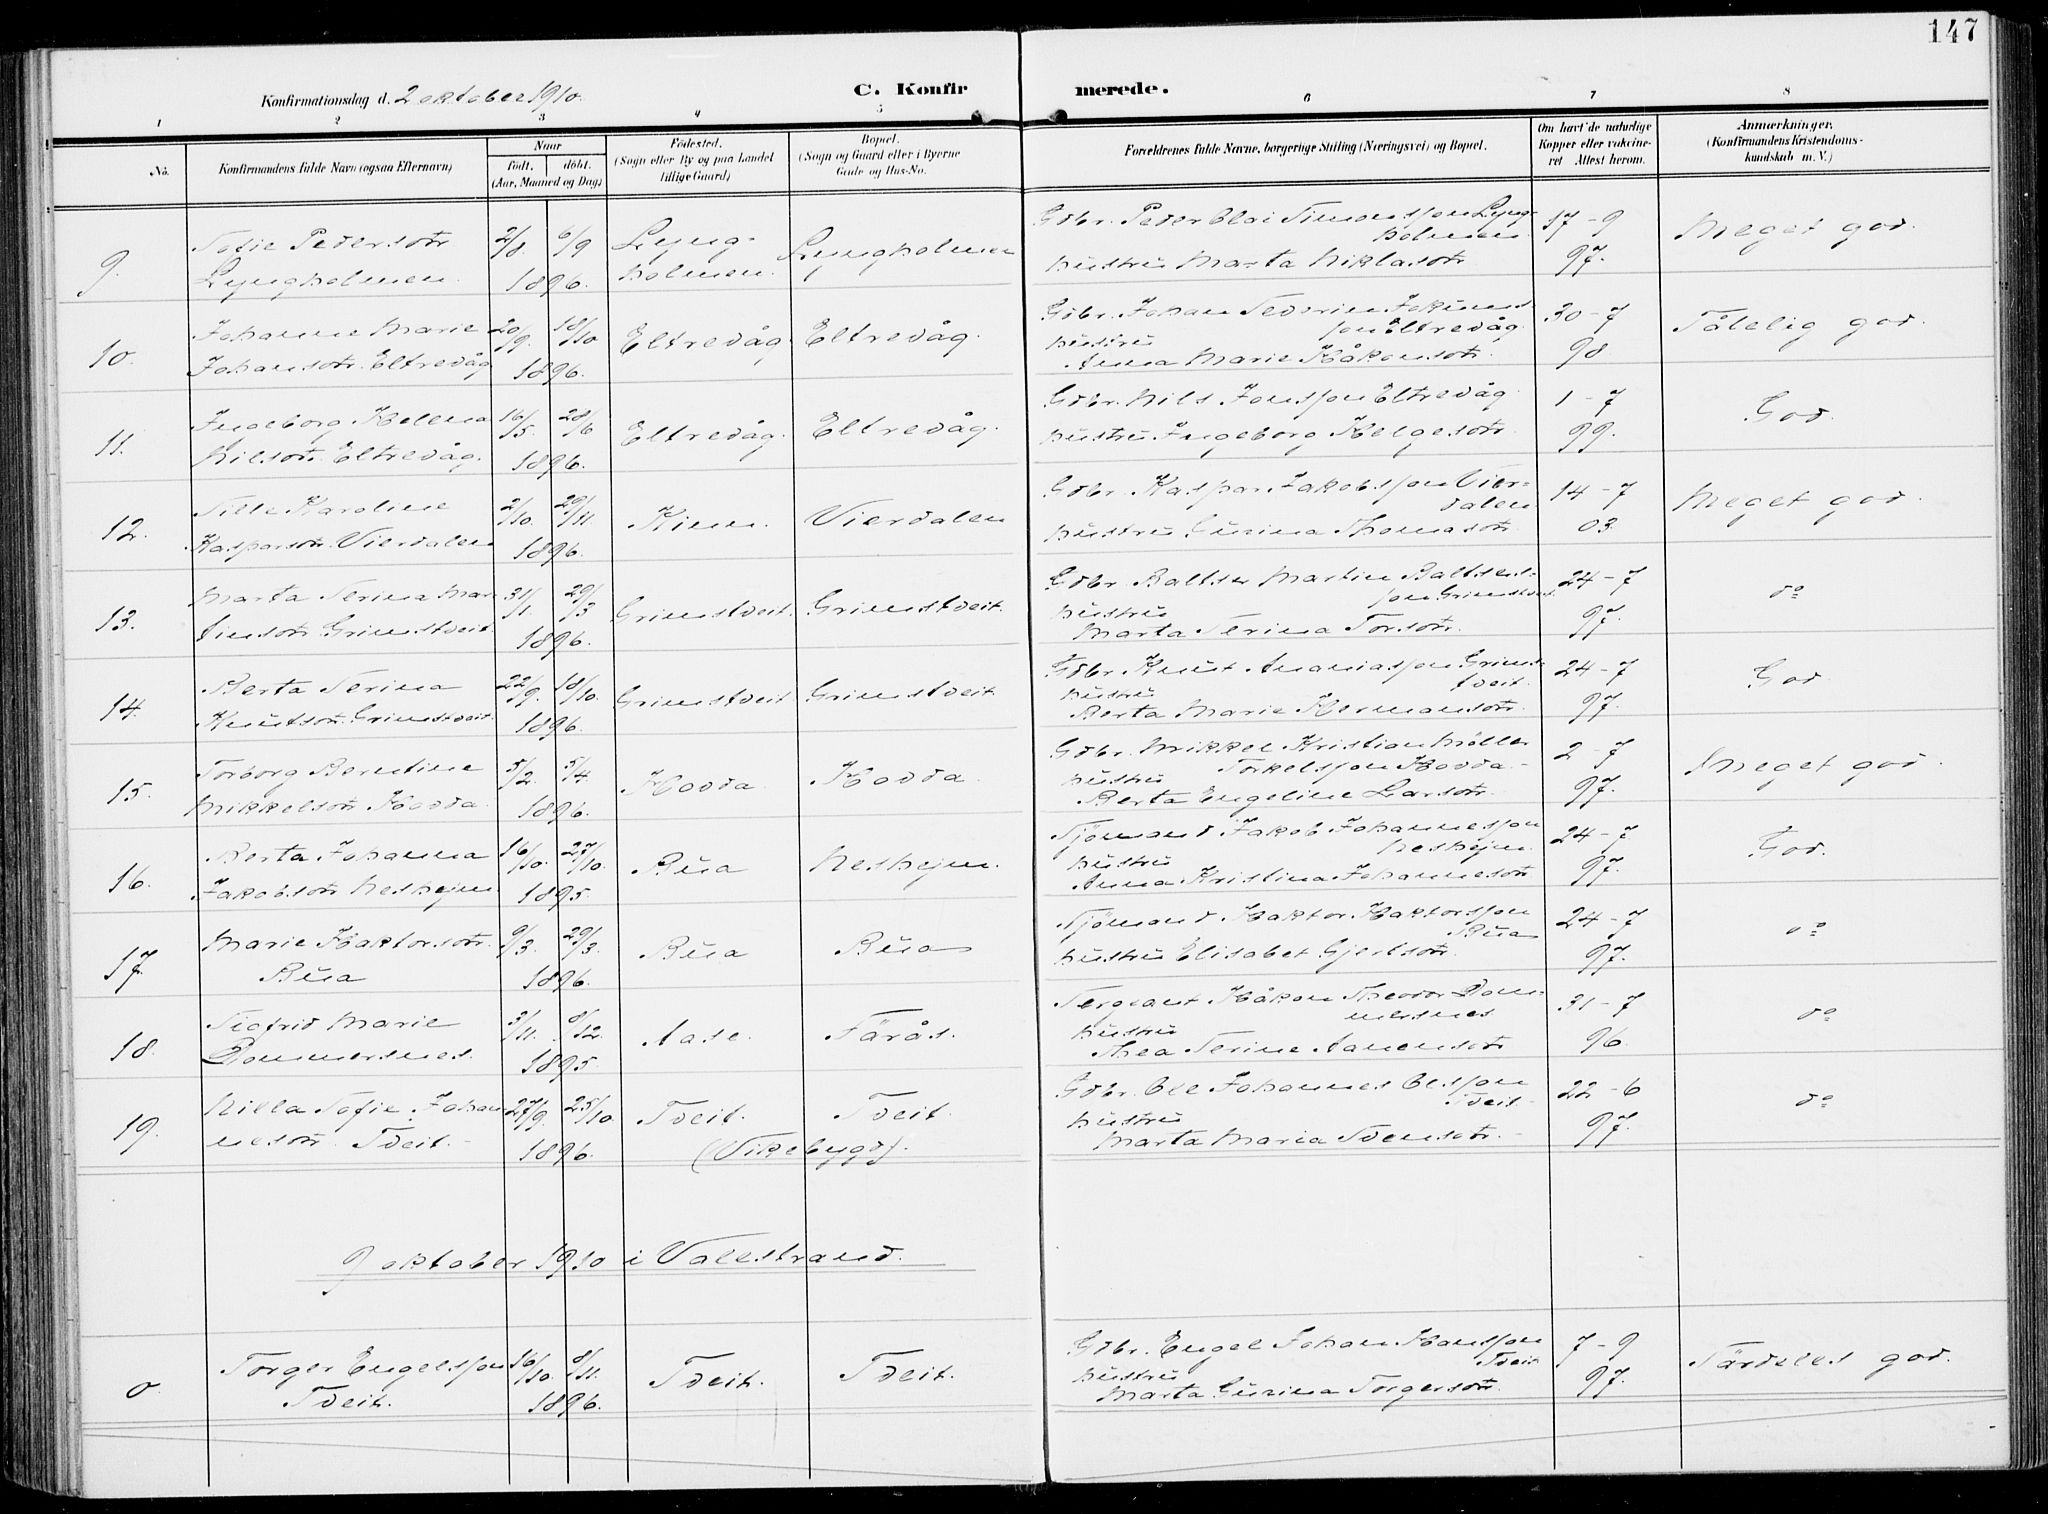 147
Konfirmationsdag d. 2 oktober 1910.
C. Konfirmerede.
1 2 3 4 5 6 7 8
No.
Konfirmandens fulde Navn (ogsaa Efternavn)
Naar
født. døbt.
(Aar, Maaned og Dag)
Fødested.
(Sogn eller By og paa Landet
tillige Gaard)
Bopæl.
(Sogn og Gaard eller i Byerne
Gade og Hus-No.
Forældrenes fulde Navne, borgerlige Stilling (Næringsvei) og Bopæl.
Om havt de naturlige
Kopper eller vakcine-
ret Attest herom.
Anmærkninger.
(Konfirmandens Kristendoms-
kundskab m. V.)
9. Sofie Pedersdtr Lyngholmen 2/8 6/9 1896. Lyngholmen. Lyngholmen
Gdbr. Peder Olai Simonsson Lyngholmen hustru Marta Niklasdtr. 17-9 97. Meget god.
10. Johanne Marie Johansdtr. Eltrevåg 20/9. 18/10 1896. Eltrevåg Eltrevåg.
Gdbr. Johan Severin Jokumsson Eltrevåg hustru Anna Marie Håkonsdtr. 30-7 98 Tålelig god.
11. Ingeborg Helena Nilsdtr. Eltrevåg. 16/5. 28/6 1896. Eltrevåg. Eltrevåg.
Gdbr. Nils Jonsson Eltrevåg hustru Ingeborg Helgesdtr. 1-7 99. God.
12. Sille Karoline Kaspersdtr. Vierdalen 2/10. 29/11. 1896. Kinn. Vierdalen
Gdbr. Kaspar Jakobsson Vierdalen hustru Gurina Thomasdtr. 14-7 03. Meget god.
13. Marta Serina Martinsdtr. Grimstveit. 31/1. 29/3 1896. Grimstveit. Grimstveit.
Gdbr. Baltser Martin Baltsersson Grimstveit. hustru Marta Serina Torsdtr. 24-7 97. do
14. Berta Serina Knutsdtr. Grimstveit. 22/9. 18/10. 1896. Grimstveit Grimstveit.
Gdbr. Knut Ananiasson Grimstveit. hustru Berta Marie Hermansdtr. 24-7 97. God.
15. Torborg Berntine Mikkelsdtr. Hovda. 5/2. 5/4. 1896. Hovda. Hovda.
Gdbr. Mikkel Kristian Møller Torkelsson Hovda. hustru Berta Engeline Larsdtr. 2-7 97. Meget god.
16. Berta Johanna Jakobsdtr. Neshejm 16/10. 27/10. 1895. Bua Neshejm.
Sjömand Jakob Johannesson Neshejm. hustru Anna Kristina Johannesdtr 24-7 97. God.
17. Marie Haktorsdtr. Bua 9/3. 29/3. 1896. Bua Bua
Sjömand Haktor Haktorsson Bua hustru Elisabet Gjertsdtr. 24-7 97. do
18. Sigfrid Marie Dommersnes. 3/11. 8/12. 1895. Aase. Färås.
Sergeant Håkon Theodor Dommersnes hustru Thea Serine Aamensdtr 31-7 96. do
19. Nilla Sofie Johannesdtr. Tveit. 27/9. 25/10. 1896. Tveit. (Vikebygd). Tveit.
Gdbr. Ole Johannes Olsson Tveit. hustru Marta Maria Svensdtr. 22-6 97. do
9 oktober 1910 i Valestrand.
0. Torger Engelsson Tveit. 16/10. 8/11. 1896. Tveit. Tveit.
Gdbr. Engel Johan Hansson Tveit. hustru Marta Gurina Torgersdtr. 7-9 97. Särdeles god.